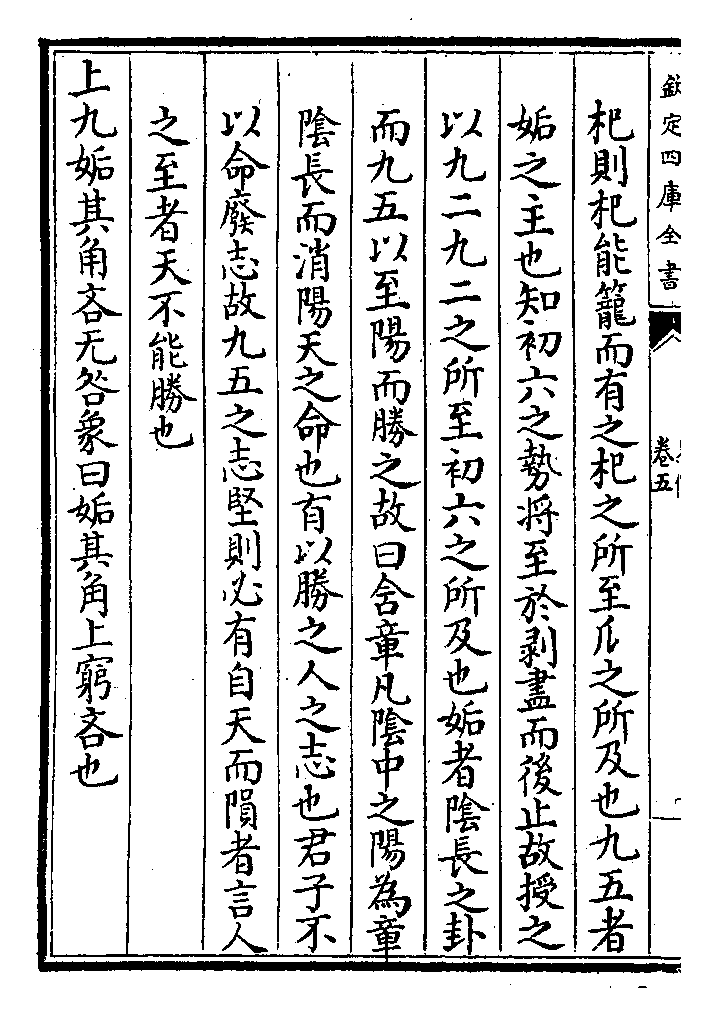 欽定四庫全書
卷五
杞則杞能籠而有之杞之所至瓜之所及也九五者
姤之主也知初六之勢將至於剥盡而後止故授之
以九二九二之所至初六之所及也姤者隂長之卦
而九五以至陽而勝之故曰含章凡隂中之陽為章
隂長而消陽天之命也有以勝之人之志也君子不
以命廢志故九五之志堅則必有自天而隕者言人
之至者天不能勝也
上九姤其角吝无咎象曰姤其角上窮吝也